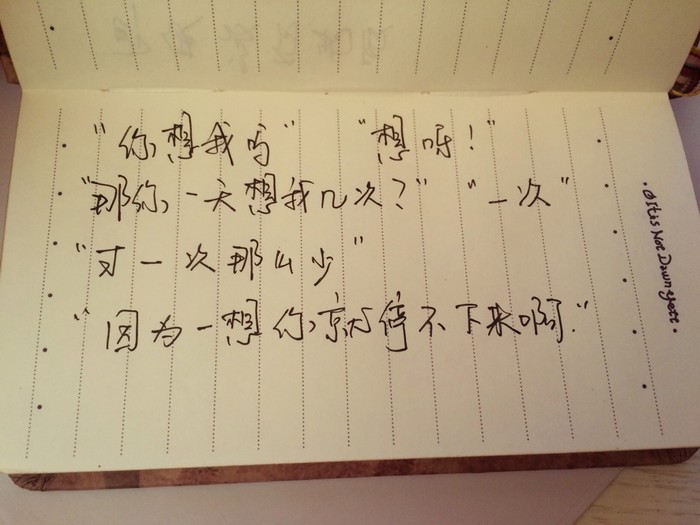 "你想我吗" "想呀!"
"那你一天想我几次?" "一次"
"才一次那么少"
"因为一想你就停不下来啊."
It is Not Down yett